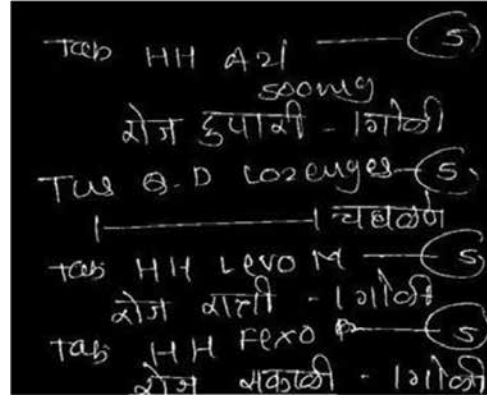 Tab HH Azi — 5
500mg
रोज दुपारी - 1 गोळी
Tus Q-D Lozenges — 5
1 — 1 चघळणे
Tab HH Levo M — 5
रोज रात्री - 1 गोळी
Tab HH Fexo — 5
रोज सकाळी - 1 गोळी